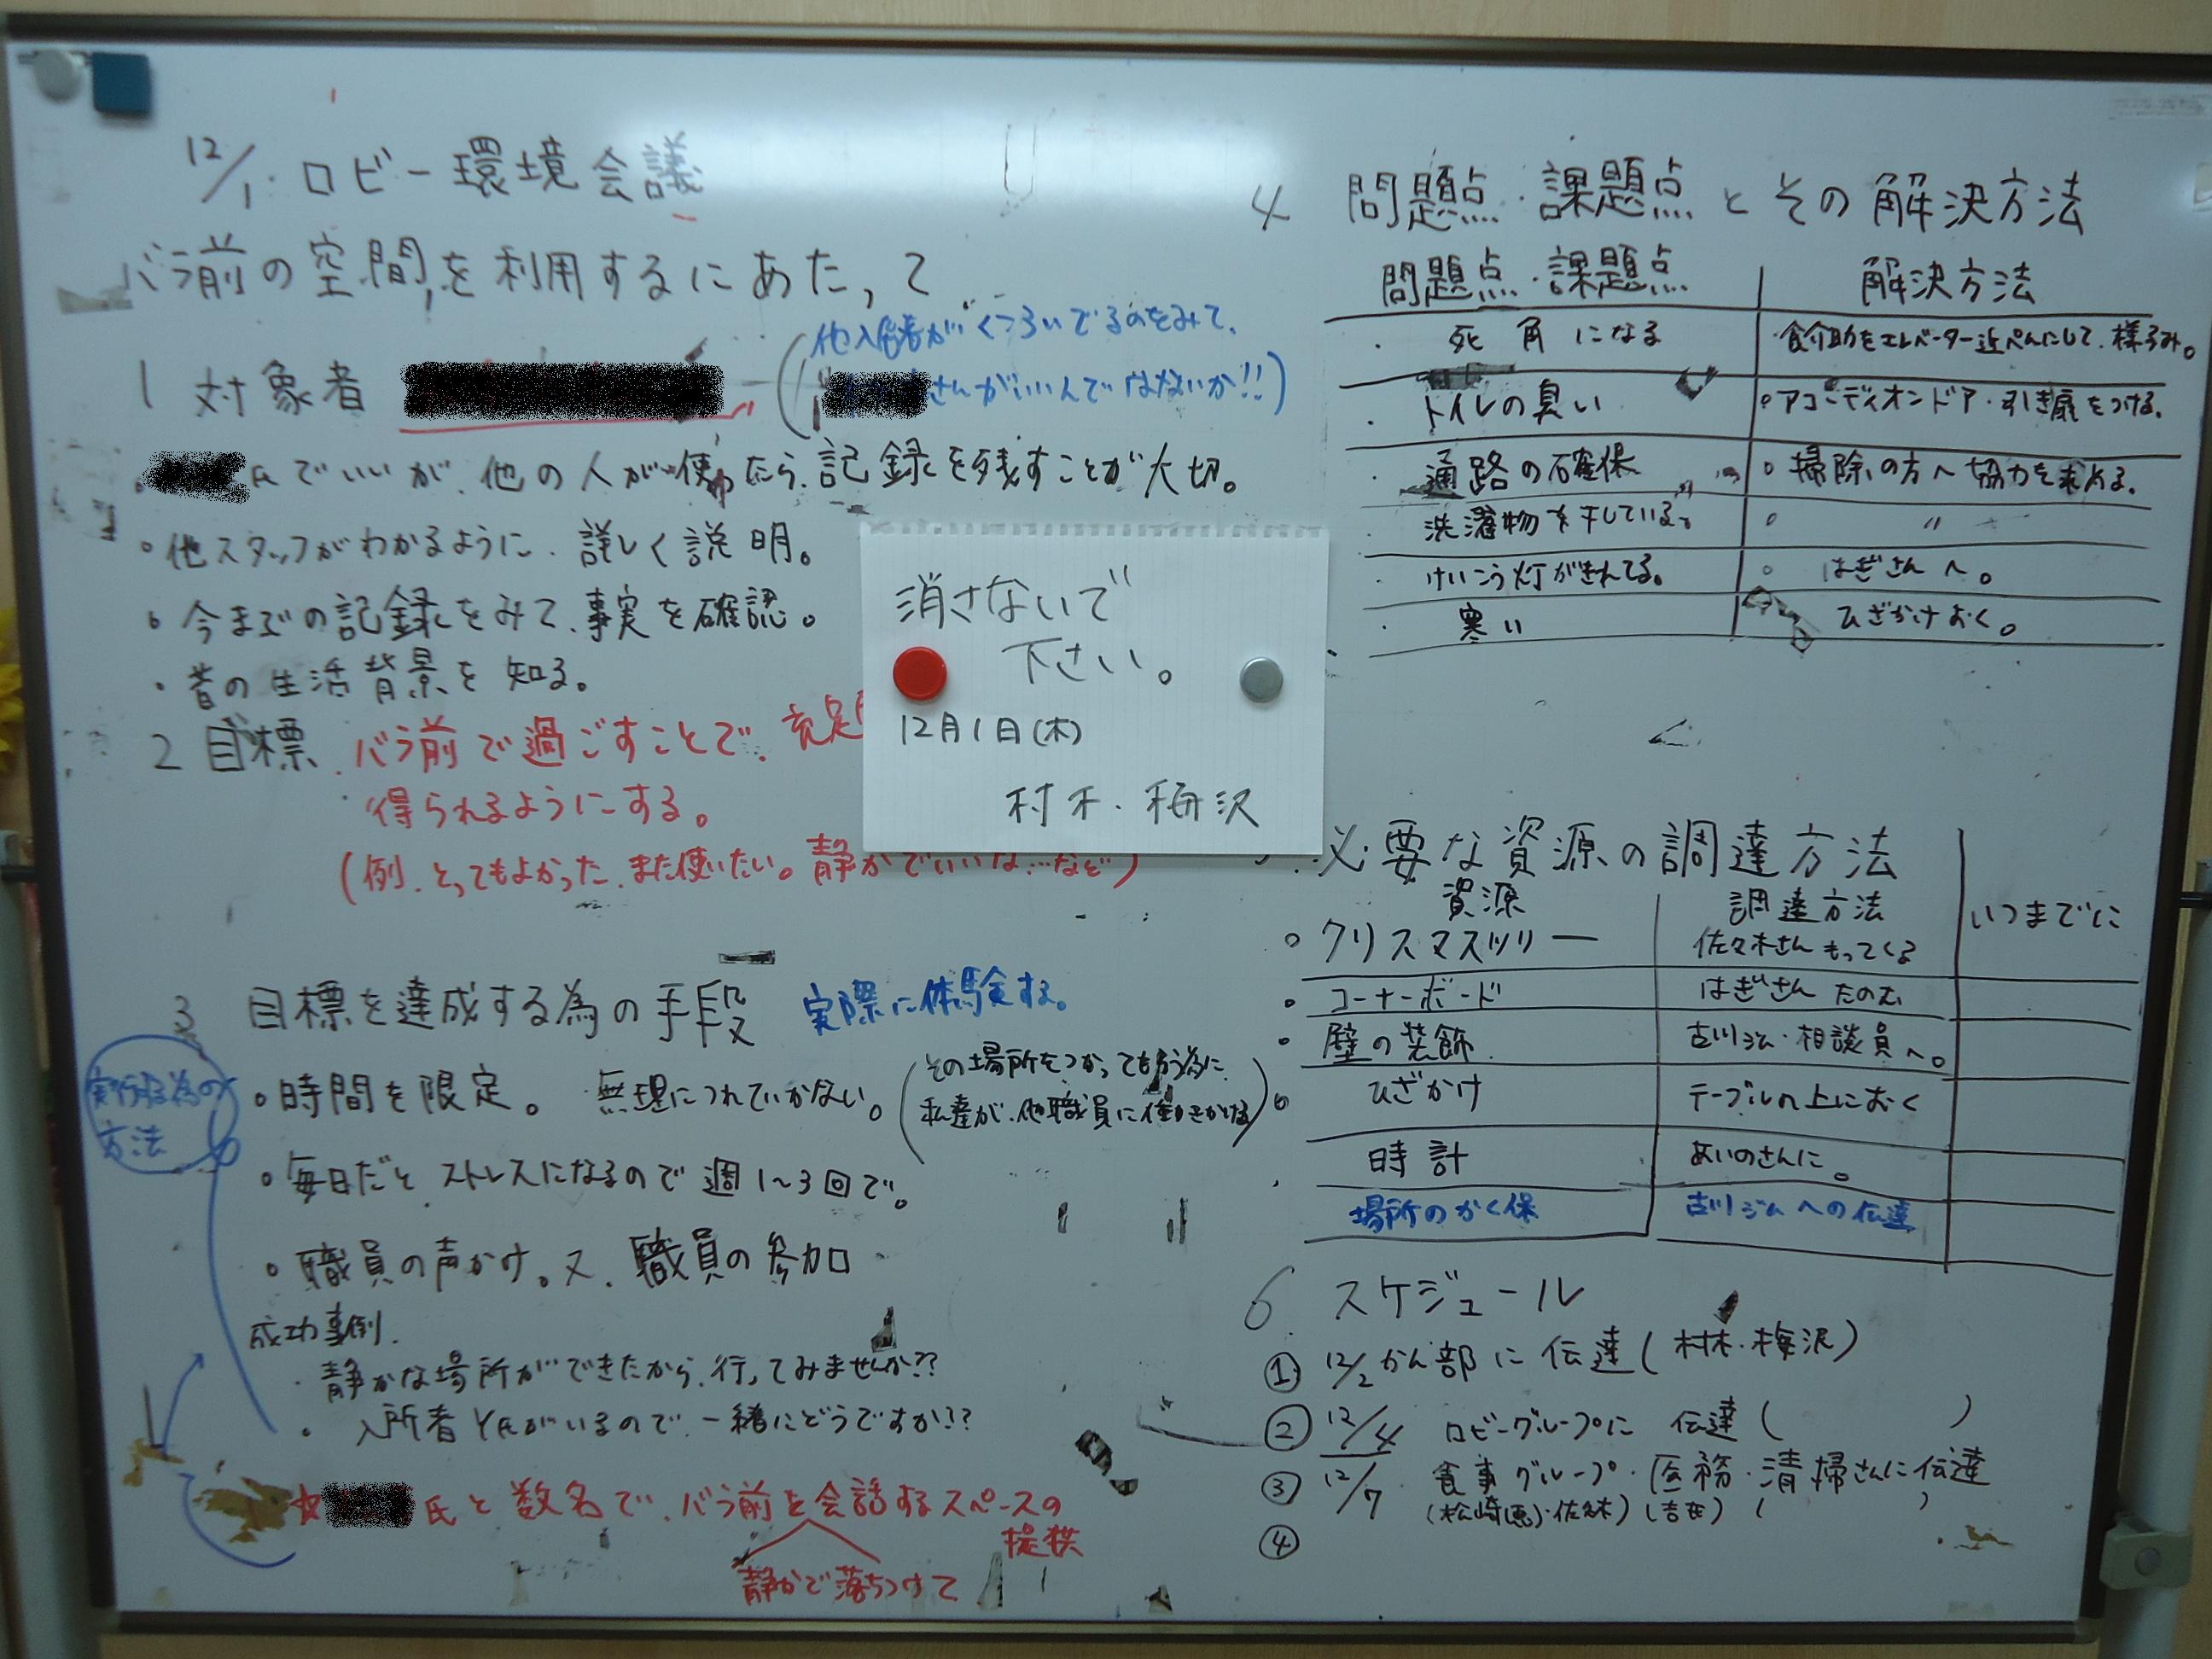 12/1. ロビー環境会議
バラ前の空間を利用するにあたって
1 対象者
(他入居者がくつろいでるのをみて、
さんがいいんではないか!!)
氏でいいが、他の人が使ったら、記録を残すことが大切。
○他スタッフがわかるように、詳しく説明。
○今までの記録をみて、事実を確認。
・昔の生活背景を知る。
2 目標 バラ前で過ごすことで、充足
得られるようにする。
(例、とってもよかった、また使いたい。静かでいいな…など)
消さないで
下さい。
12月1日(木)
村木・梅沢
3 目標を達成する為の手段 実際に体験する。
実行する為の
方法
○時間を限定。 無理につれていかない。
(その場所をつかってもらう為に、
私達が、他職員に働きかける)
○毎日だと、ストレスになるので週1〜3回で。
○職員の声かけ。又、職員の参加
成功事例.
・静かな場所ができたから、行ってみませんか??
・入所者Y氏がいるので、一緒にどうですか!?
☆ 氏と数名で、バラ前を会話するスペースの
提供
静かで落ちつけて
4 問題点・課題点とその解決方法
問題点・課題点 解決方法
・死角になる ・食介助をエレベーター近ぺんにして、様子み。
・トイレの臭い ○アコーディオンドア・引き扉をつける。
・通路の確保 ○掃除の方へ協力を求める。
・洗濯物を干している。 ○ 〃
・けいこう灯がきれてる。 ○ はぎさんへ。
・寒い ひざかけおく。
必要な資源の調達方法
資源 調達方法 いつまでに
○クリスマスツリー 佐々木さんもってくる
○コーナーボード はぎさん たのむ
○壁の装飾 古川ジム・相談員へ。
○ひざかけ テーブルの上におく
・時計 あいのさんに。
場所のかく保 古川ジムへの伝達
6 スケジュール
① 12/2 かん部に伝達(村木・梅沢)
② 12/4 ロビーグループに 伝達( )
③ 12/7 食事グループ・医務・清掃さんに伝達
(松崎(恵)・佐々木) ( ) ( )
④